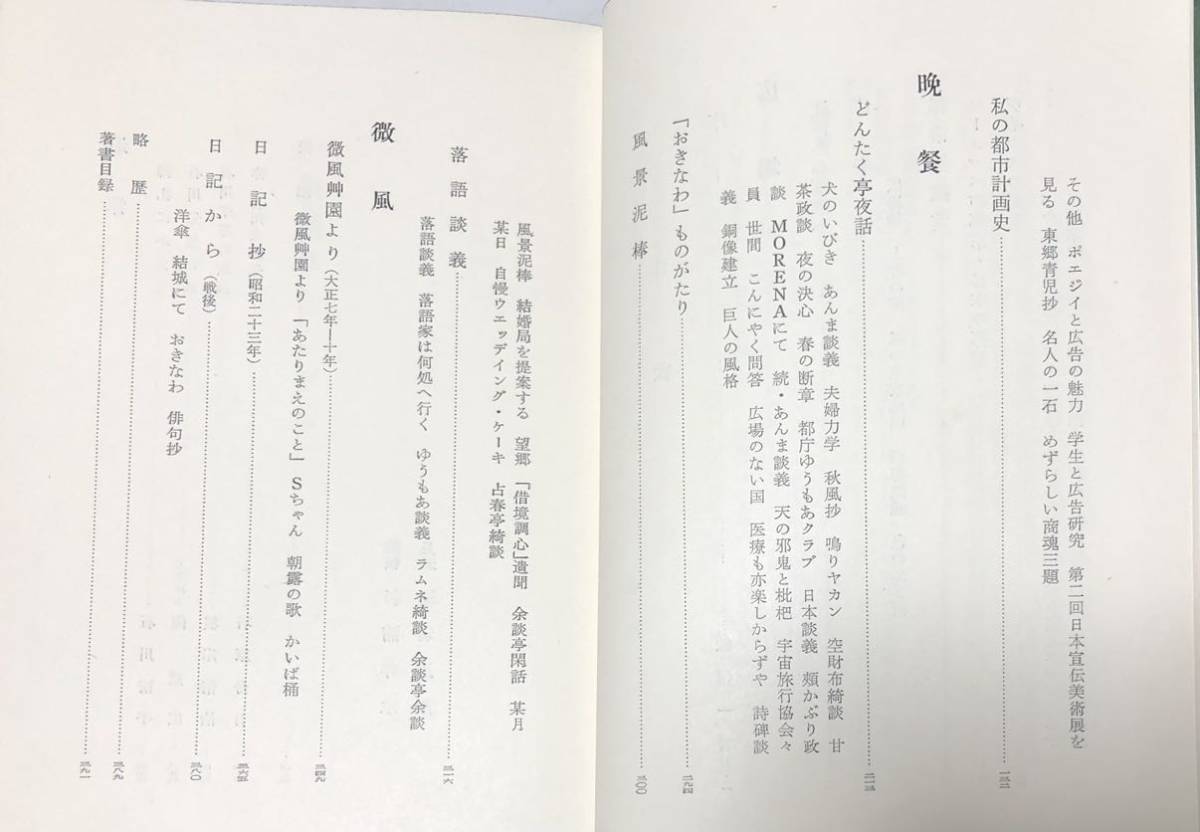 その他　ポエジイと広告の魅力　学生と広告研究　第二回日本宣伝美術展を
見る　東郷青児抄　名人の一石　めずらしい商魂三題
私の都市計画史……一三二
晩餐
どんたく亭夜話……二一三
犬のいびき　あんま談義　夫婦力学　秋風抄　鳴りヤカン　空財布綺談　甘
茶政談　夜の決心　春の断章　都庁ゆうもあクラブ　日本談義　頬かぶり政
談　MORENAにて　続・あんま談義　天の邪鬼と枇杷　宇宙旅行協会々
員　世間　こんにやく問答　広場のない国　医療も亦楽しからずや　詩碑談
義　銅像建立　巨人の風格
「おきなわ」ものがたり……二九四
風景泥棒……三〇〇
風景泥棒　結婚局を提案する　望郷　「借境調心」遺聞　余談亭閑話　某月
某日　自慢ウエッデイング・ケーキ　占春亭綺談
落語談義……三一六
落語談義　落語家は何処へ行く　ゆうもあ談義　ラムネ綺談　余談亭余談
微風
微風艸園より（大正七年―十年）……三四九
微風艸園より　「あたりまえのこと」　Sちゃん　朝露の歌　かいば桶
日記抄（昭和二十三年）……三六五
日記から（戦後）……三八〇
洋傘　結城にて　おきなわ　俳句抄
略歴……三八九
著書目録……三九一